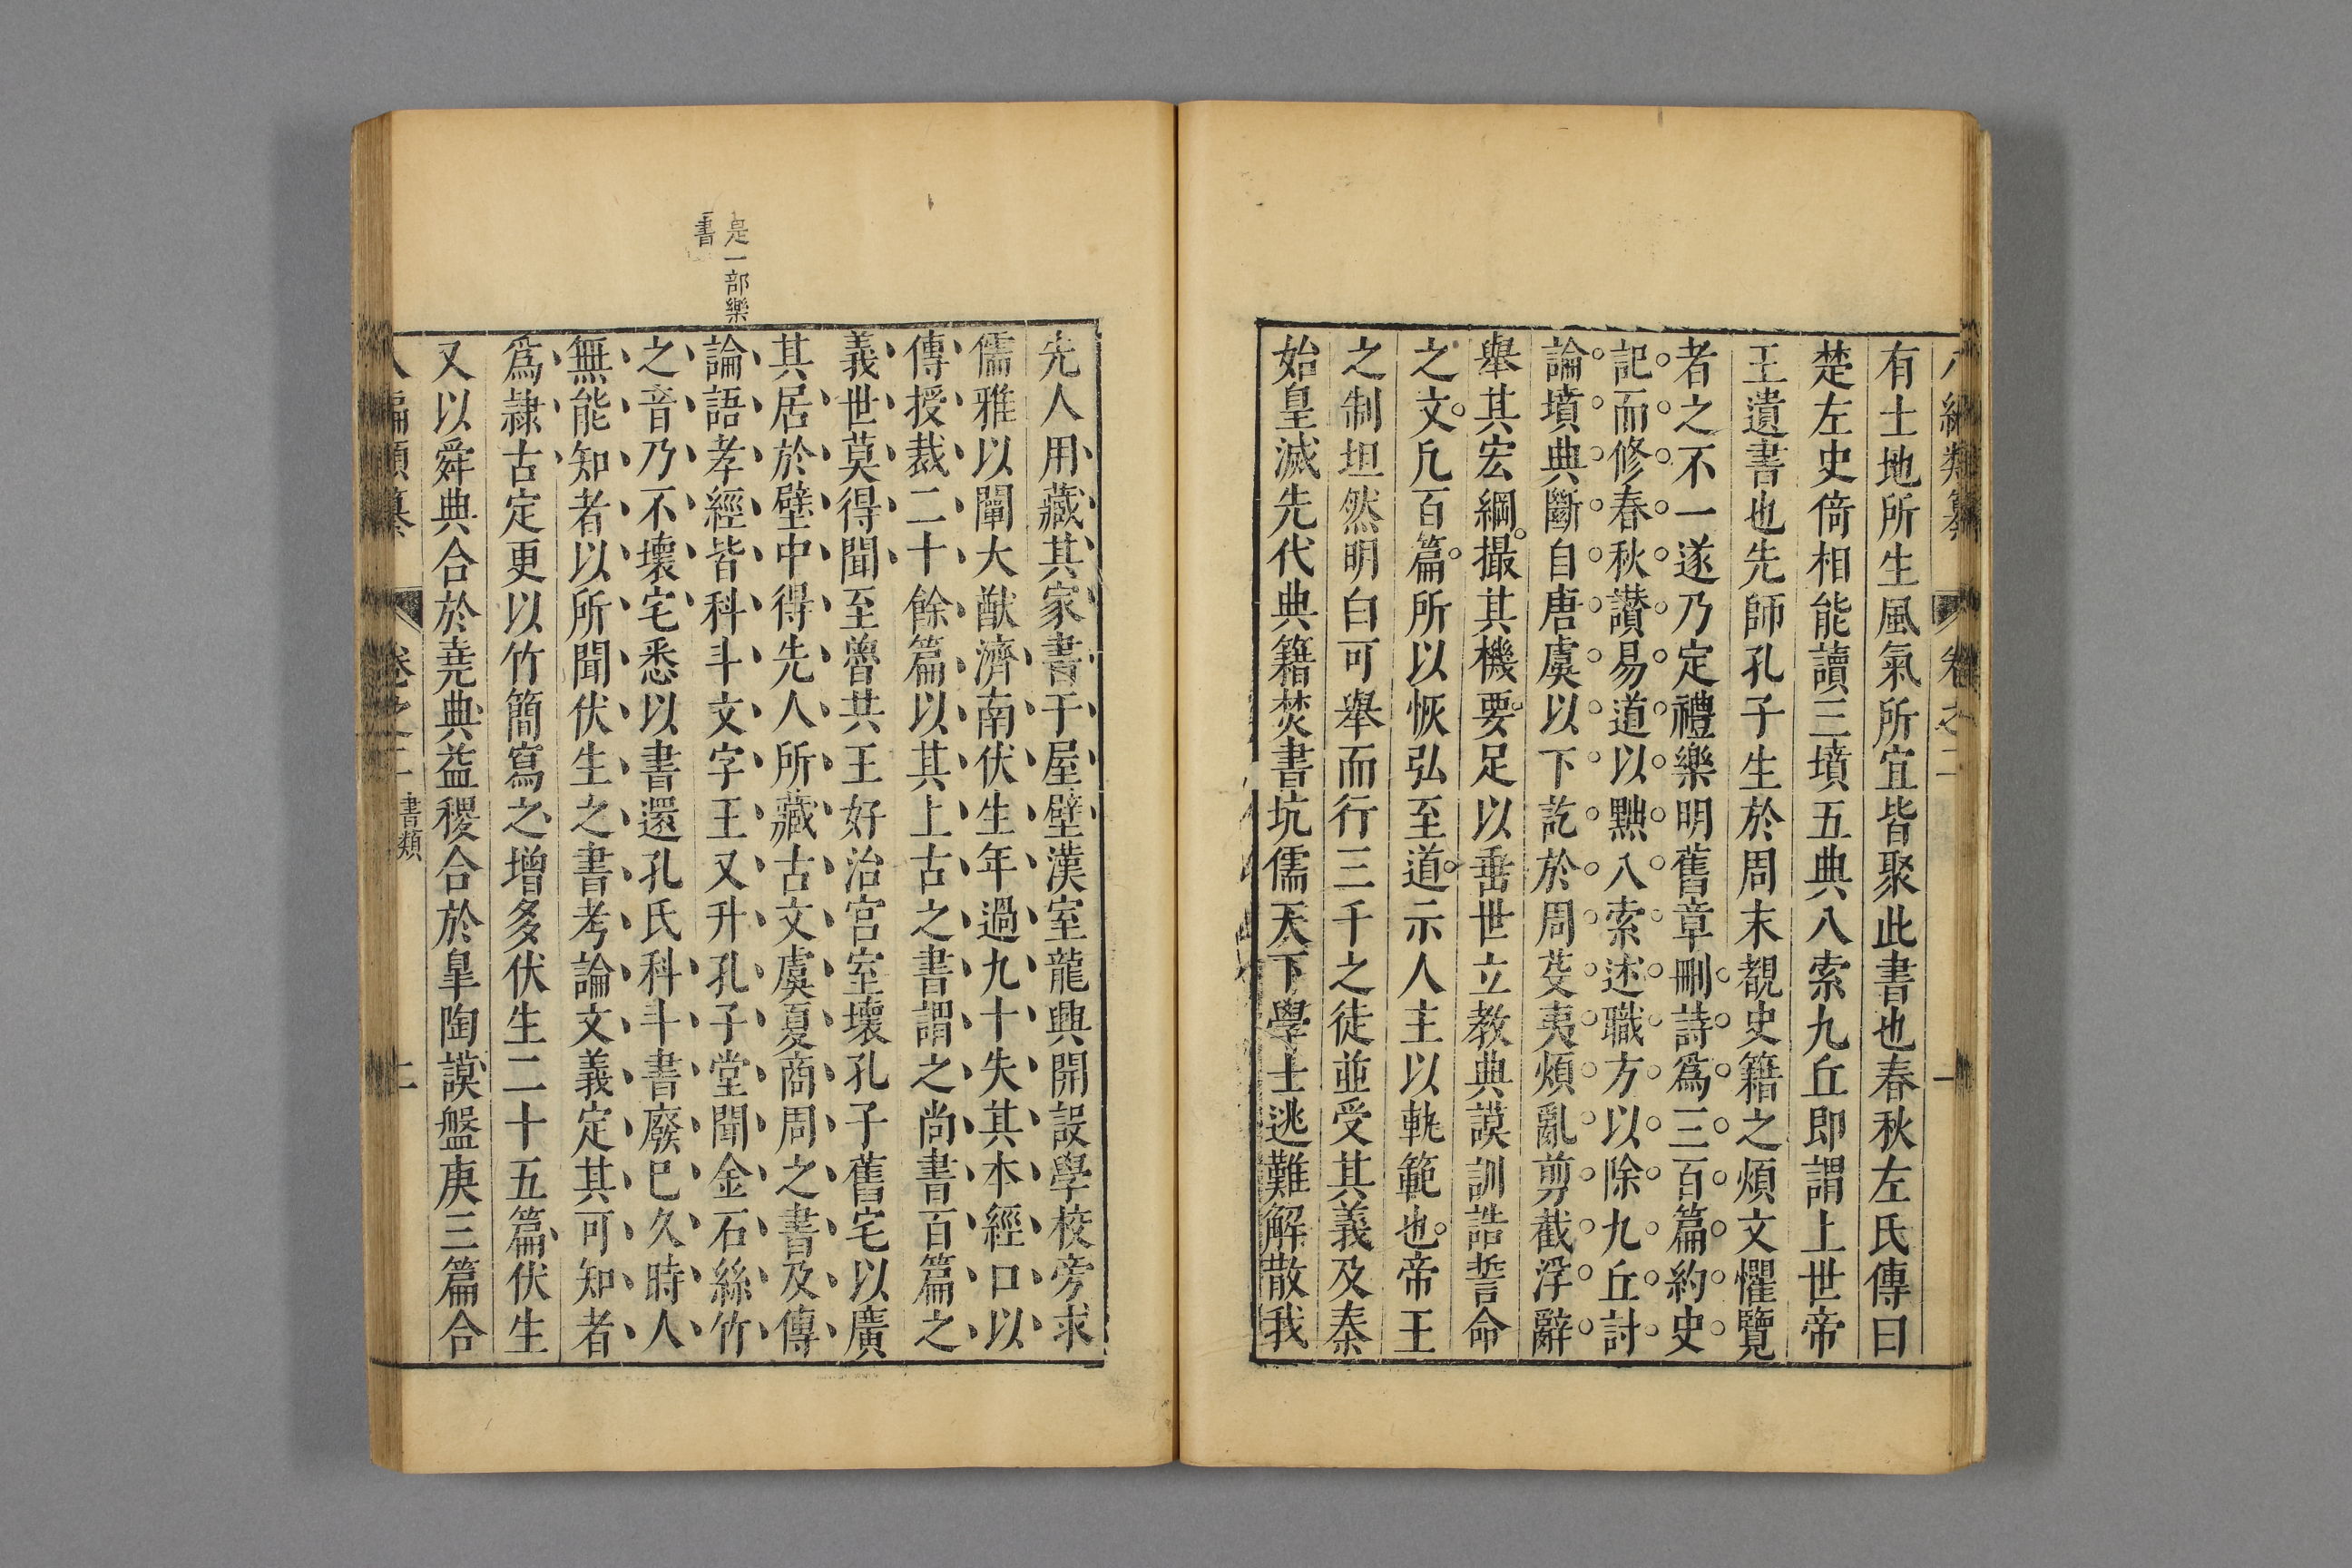 有土地所生風氣所宜皆聚此書也春秋左氏傳曰
楚左史倚相能讀三墳五典八索九丘即謂上世帝
王遺書也先師孔子生於周末覩史籍之煩文懼覽
者之不一遂乃定禮樂明舊章刪詩爲三百篇約史
記而修春秋讚易道以黜八索述職方以除九丘討
論墳典斷自唐虞以下訖於周芟夷煩亂剪截浮辭
舉其宏綱撮其機要足以垂世立教典謨訓誥誓命
之文凡百篇所以恢弘至道示人主以軌範也帝王
之制坦然明白可舉而行三千之徒並受其義及秦
始皇滅先代典籍焚書坑儒天下學士逃難解散我
先人用藏其家書于屋壁漢室龍興開設學校旁求
儒雅以闡大猷濟南伏生年過九十失其本經口以
傳授裁二十餘篇以其上古之書謂之尚書百篇之
義世莫得聞至魯共王好治宮室壞孔子舊宅以廣
其居於壁中得先人所藏古文虞夏商周之書及傳
是一部樂
書
論語孝經皆科斗文字王又升孔子堂聞金石絲竹
之音乃不壞宅悉以書還孔氏科斗書廢已久時人
無能知者以所聞伏生之書考論文義定其可知者
爲隷古定更以竹簡寫之增多伏生二十五篇伏生
又以舜典合於堯典益稷合於皐陶謨盤庚三篇合
編類纂 卷之二 書類 二